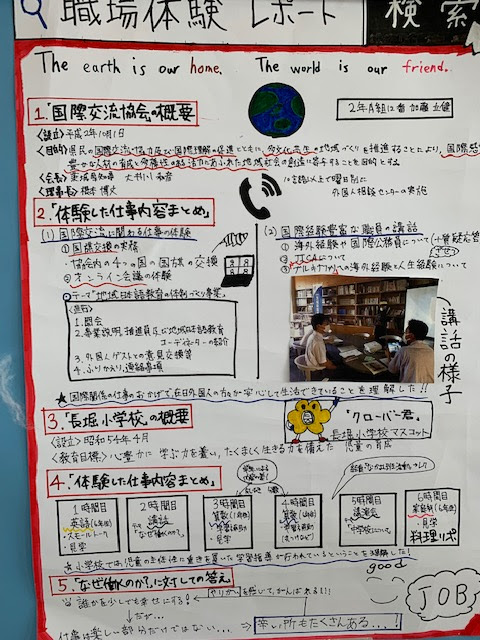 職場体験 レポート 検索
The earth is our home. The world is our friend.
1.「国際交流協会」の概要
<設立>平成2年10月1日
<目的>県民の国際交流・協力及び国際理解の促進とともに、多文化共生の地域づくりを推進することにより、国際感
豊かな人材の育成と多様性のある活力にあふれた地域社会の創造に寄与することを目的とする
<会長>
<理事長>橋本 博文
外国人相談センターの実施
2.「体験した仕事内容まとめ」
(1)国際交流に関わる仕事の体験
①国旗交換の実施
・協会内の4つの国の国旗の交換
②オンライン会議の体験
テーマ「地域日本語教育の体制づくり事業」
1.開会
2.事業説明 推進員及び地域日本語教育
コーディネーターの紹介
3.外国人ゲストとの意見交換等
4.ふりかえり、連絡事項
(2)国際経験豊富な職員の講話
①海外経験や国際公務員について(+質疑応答)
②JICAについて
講話の様子
★国際関係の仕事のおかげで、在日外国人の方が安心して生活できていることを理解した!!
3.「長堀小学校」の概要
<設立>昭和54年4月
<教育目標>心豊かに 学ぶ力を養い、たくましく生きる力を備えた 児童の育成
"クローバー君"
長堀小学校マスコット
4.「体験した仕事内容まとめ」
1時間目
英語(6年生)
・スモールトーク
・見学
2時間目
講話
「なぜ働くのか?」
3時間目
算数
・見学
4時間目
算数
5時間目
講演会
6時間目
家庭科(6年)
・見学
料理リポ
☆小学校では、児童の主体性に重きを置いた学習指導が行われているということを理解した!
good
5.「なぜ働くのか?」に対しての答え
誰かを少しでも幸せにする!
やりがいを感じて、がんばれる!!
だが…
仕事は楽しい部分だけではない…
辛い所もたくさんある…!
JOB